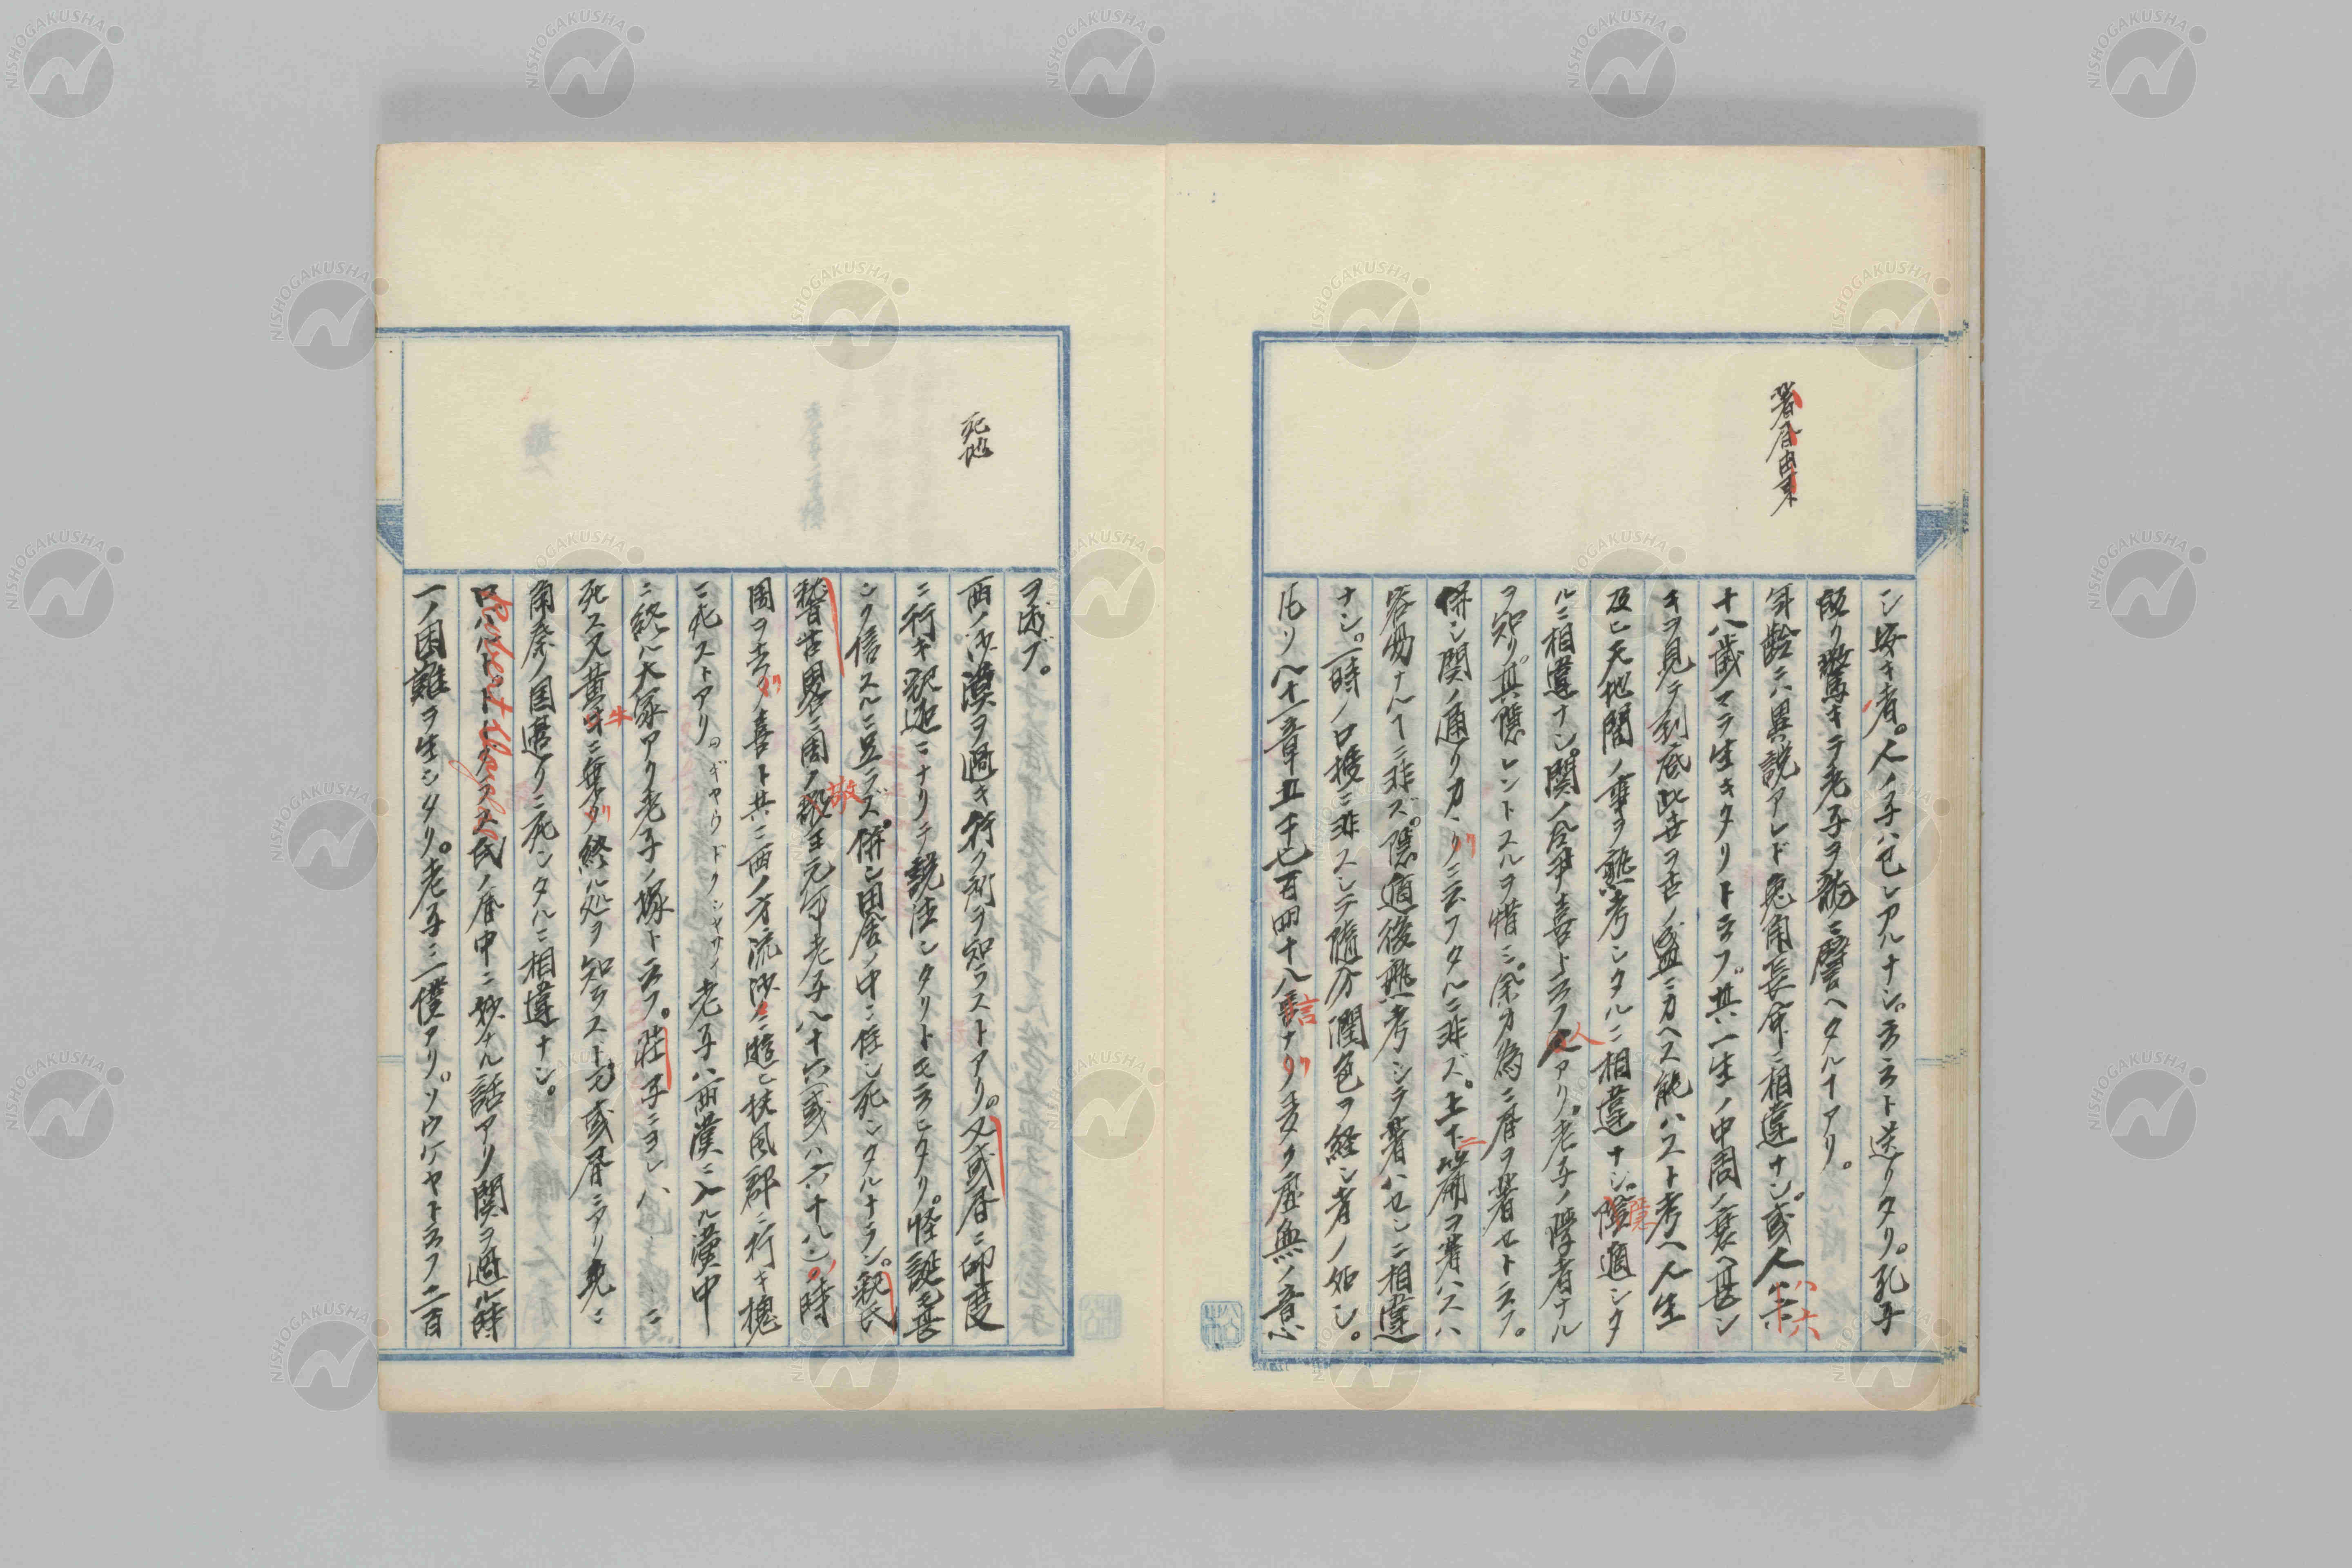 著書由来
シ安キ者。人ノ子ハ己レアルナシ。云云ト送リタリ。孔子
皈リ驚キテ老子ヲ龍ニ譬ヘタルヿアリ。
年齢ニハ異説アレド兎角長命ニ相違ナシ。或人
十八歳マテ生キタリト云フ。其一生ノ中周ノ衰ヘ甚シ
キヲ見テ到底此世ヲ古ノ盛ニカヘス能ハスト考ヘ人生
及ヒ天地間ノ事ヲ熟考シタルニ相違ナシ。隠遁シタ
ルニ相違ナシ。関ノ令尹喜ト云フ人アリ。老子ノ学者ナル
ヲ知リ其隠レントスルヲ惜ミ。余カ為ニ書ヲ著セト云フ。
併シ関ノ通リカヽリニ云フタルニ非ズ。上下二篇ヲ著ハスハ
容易ナルヿニ非ズ。隠遁後熟考シテ著ハセシニ相違
ナシ。一時ノ口授ニ非スシテ随分潤色ヲ経シ者ノ如シ。
凡ソ八十一章五千七百四十八言ナリ。多ク虚無ノ意
死地
ヲ述ブ。
西ノ沙漠ヲ過キ行ク所ヲ知ラストアリ。又或書ニ印度
ニ行キ釈迦ニナリテ説法シタリトモ云ヒタリ。怪誕甚
シク信スルニ足ラズ。併シ田舎ノ中ニ住シ死シタルナラン。釈氏
稽古畧ニ周ノ敬王元年老子八十六或ハ六十八ノ時
周ヲ去リ喜ト共ニ西ノ方流沙ニ遊ヒ扶風郡ニ行キ槐
ニ死ストアリ。ギヤウドクシヤサイ老子ハ西漢ニ入ル漢中
ニ終ル大塚アリ老子ノ塚ト云フ。荘子ニヨレハ
死ス又黄牛ニ乗リ終ル処ヲ知ラスト云フ或書ニアリ兎ニ
角秦ノ国邊リニ死シタルニ相違ナシ。
Robert Douglas
ロバルト、ドーグラス氏ノ書中ニ妙ナル話アリ関ヲ過ル時
一ノ困難ヲ生シタリ。老子ニ一僕アリ。ソウケヤト云フ二百